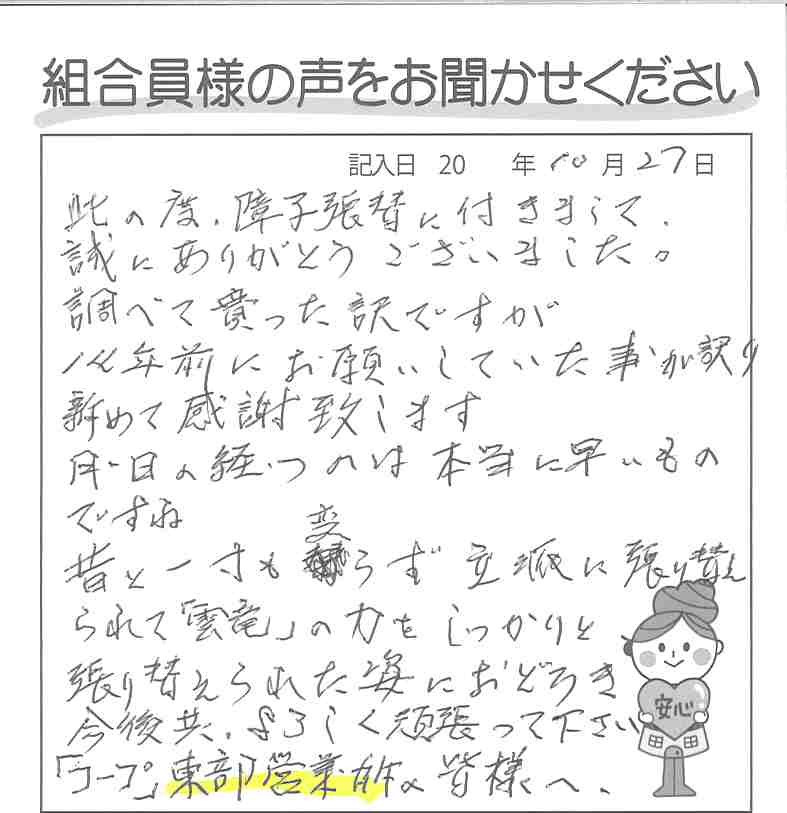 組合員様の声をお聞かせください
記入日 20 年 10月 27日
此の度、障子張替に付きまして、
誠にありがとうございました。
調べて貰った訳ですが
年前にお願いしていた事が訳り
新めて感謝致します
月・日の経つのは本当に早いもの
ですね
昔と一寸も変らず立派に張り替え
られて「雲竜」の力をしっかりと
張り替えられた姿におどろき
今後共、よろしく頑張って下さい
「コープ」東部営業所の皆様へ、
安心